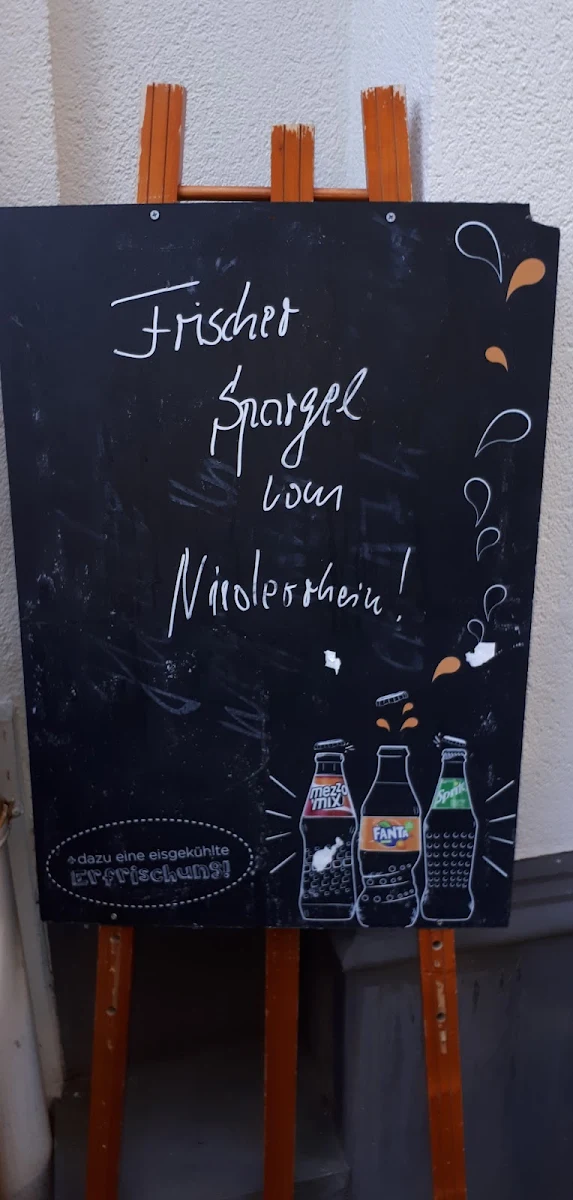 Frischer
Spargel
vom
Niederrhein!
mezzo
mix
FANTA
Sprite
dazu eine eisgekühlte
Erfrischung!